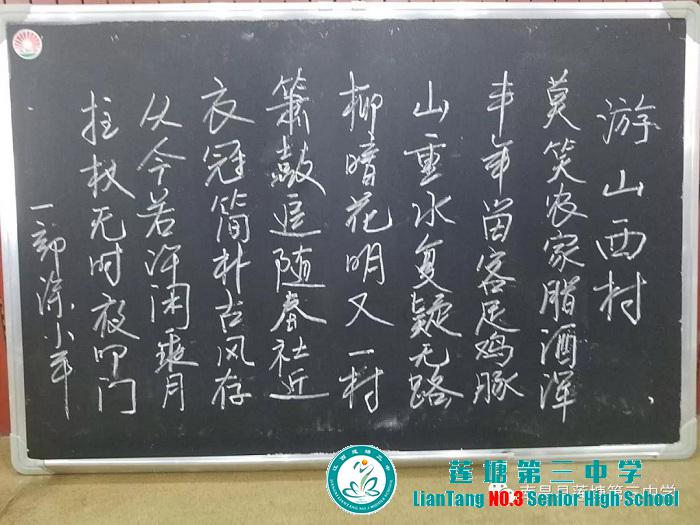 游山西村
莫笑农家腊酒浑
丰年留客足鸡豚
山重水复疑无路
柳暗花明又一村
箫鼓追随春社近
衣冠简朴古风存
从今若许闲乘月
拄杖无时夜叩门
一部涂小军
莲塘第三中学
LianTang NO.3 Senior High School
南昌县莲塘第三中学